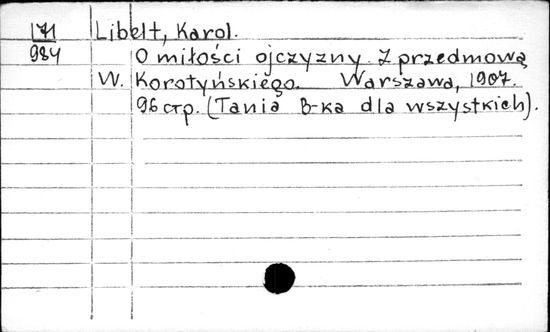 171 Libelt, Karol.
984 O miłości ojczyzny. Z przedmową
W. Korotyńskiego. Warszawa, 1907.
96 стр. (Tania B-ka dla wszystkich).